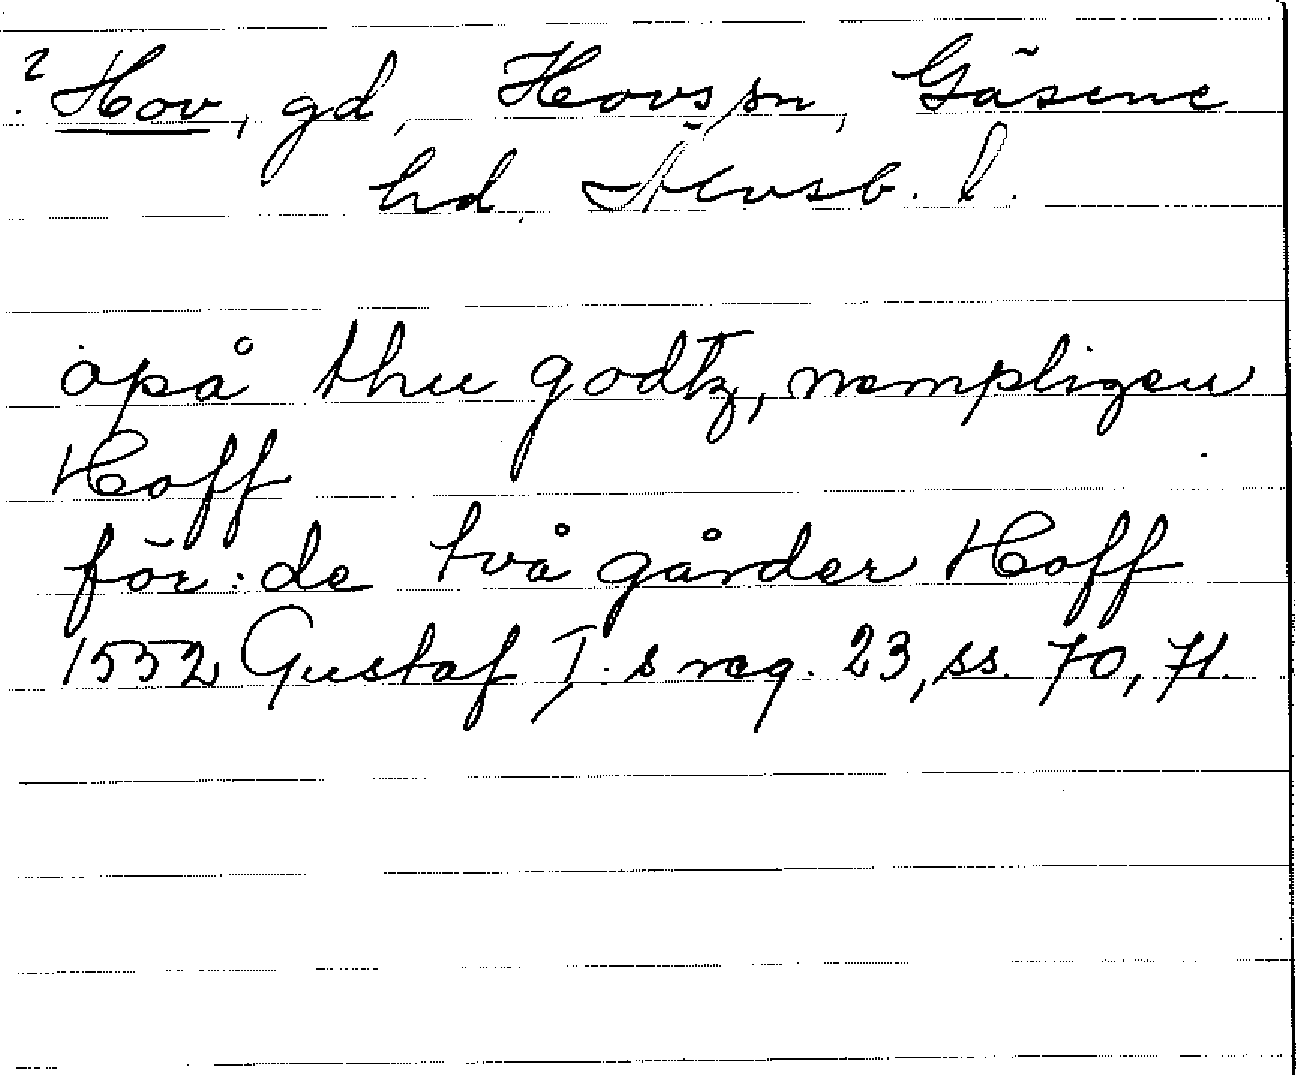 ? Hov, gd, Hovs sn, Gäsene
hd. Älvsb. l.
opå thu godtz, nempligen
Hoff
för: de två gårder Hoff
1552 Gustaf I:s reg. 23, ss. 70, 71.